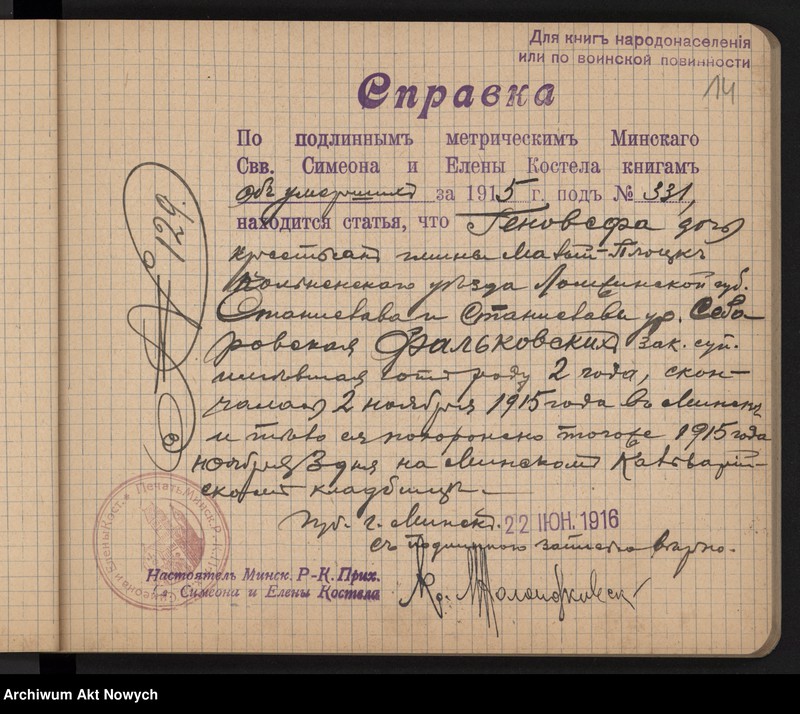 Для книгъ народонаселенія
или по воинской повинности
14
Справка
По подлиннымъ метрическимъ Минскаго
Свв. Симеона и Елены Костела книгамъ
объ умершихъ за 1915 г. подъ № 331,
находится статья, что Геновефа дочь
крестьянъ гмины Малый-Плоцкъ
Кольненскаго уѣзда Ломжинской губ.
Станислава и Станиславы ур.
Фальковскихъ зак. суп.
2 года, скон-
чалась 2 ноября 1915 года въ Минскѣ
и тѣло ея похоронено тогоже 1915 года
ноября 3 дня на Минскомъ Кальварій-
скомъ кладбищѣ.
г. Минскъ. 22 ІЮН. 1916
съ подлинною записью вѣрно.
Настоятель Минск. Р-К. Прих.
Св. Симеона и Елены Костела
Archiwum Akt Nowych